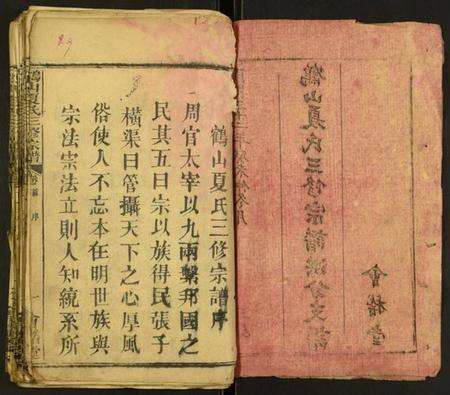 鶴山夏氏三修宗譜
會楮堂
鶴山夏氏三修宗譜序
周官太宰以九兩繫邦國之
民其五曰宗以族得民張子
橫渠曰管攝天下之心厚風
俗使人不忘本在明世族與
宗法宗法立則人知統系所
鶴山夏氏三修宗譜
序